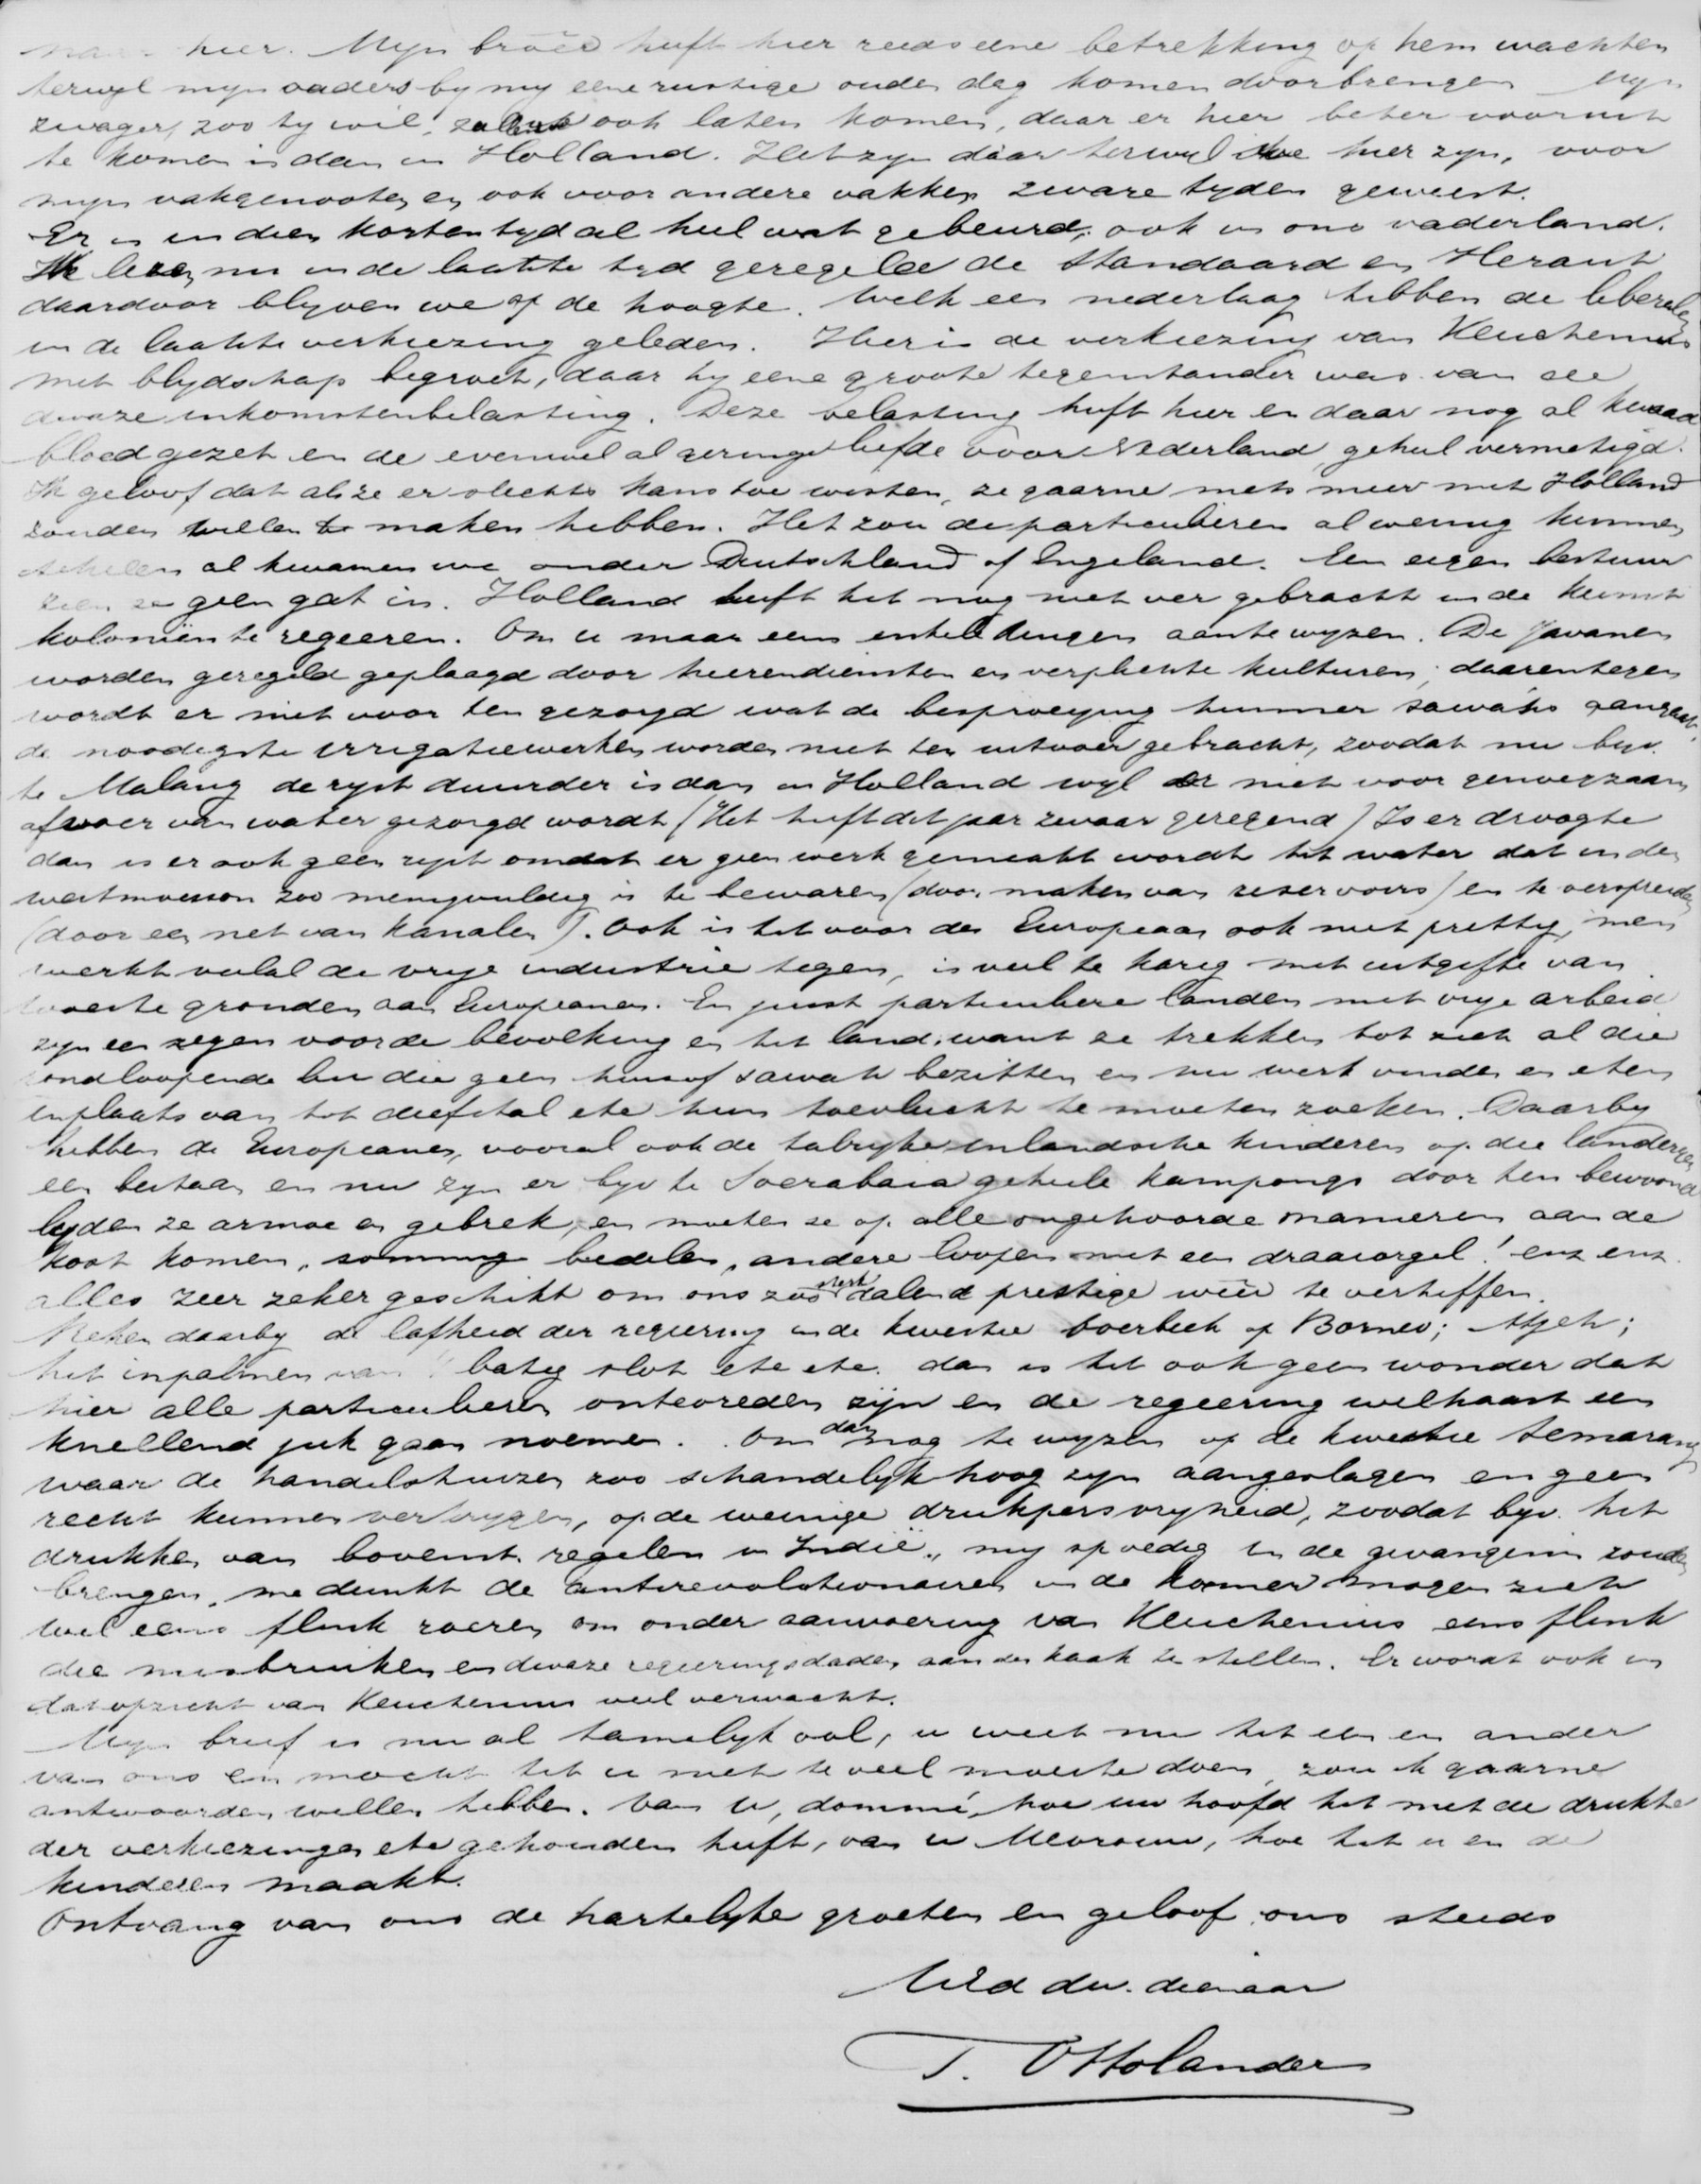 naar hier. Myn broêr heeft hier reeds eene betrekking op hem wachten
terwyl myn ouders by my eene rustige ouden dag komen doorbrengen Myn
zwager, zoo hy wil, zal ik ook laten komen, daar er hier beter vooruit
te komen is dan in Holland. Het zyn daar terwyl we hier zyn, voor
myn vakgenooten en ook voor andere vakken zware tyden geweest.
Er is in dien korten tyd al heel wat gebeurd, ook in ons vaderland.
Ik lees nu in de laatste tyd geregeld de Standaard en Heraut
daardoor blyven we op de hoogte. Welk een nederlaag hebben de liberalen
in de laatste verkiezing geleden. Hier is de verkiezing van Keuchenius
met blydschap begroet, daar hy eene groote tegenstander was van die
dwaze inkomstenbelasting. Deze belasting heeft hier en daar nog al kwaad
bloed gezet en de evenwel al geringe liefde voor Nederland geheel vernietigd.
Ik geloof dat als ze er slechts kans toe wisten, ze gaarne niets meer met Holland
zouden willen te maken hebben. Het zou de particulieren al weinig kunnen
schelen al kwamen we onder Duitschland of Engeland. Een eigen bestuur
zien ze geen gat in. Holland heeft het nog niet ver gebracht in de kunst
koloniën te regeeren. Om u maar eens enkele dingen aan te wyzen. De Javanen
worden geregeld geplaagd door heerendiensten en verplichte kulturen, daarentegen
wordt er niet voor hen gezorgd wat de besproeiing hunner sawahs aangaat,
de noodigste irrigatiewerken worden niet ten uitvoer gebracht, zoodat nu byv.
te Malang de ryst duurder is dan in Holland wyl er niet voor genoegzaam
afvoer van water gezorgd wordt (Het heeft dit jaar zwaar geregend) Is er droogte
dan is er ook geen ryst omdat er geen werk gemaakt wordt het water dat in den
westmoesson zoo menigvuldig is te bewaren (door maken van reservoirs) en te verspreiden
(door een net van kanalen). Ook is het voor den Europeaan ook niet prettig, men
werkt veelal de vrye industrie tegen, is veel te karig met uitgifte van
woeste gronden aan Europeanen. En juist particuliere landen met vrye arbeid
zyn een zegen voor de bevolking en het land, want ze trekken tot zich al die
rondloopende lui die geen huis of sawah bezitten en nu werk vinden en eten
inplaats van tot diefstal etc hun toevlucht te moeten zoeken. Daarby
hebben de Europeanen, vooral ook de talryke inlandsche kinderen op die landeryen
een bestaan en nu zyn er byv te Soerabaia geheele kampongs door hen bewoond
lyden ze armoe en gebrek, en moeten ze op alle ongehoorde manieren aan de
kost komen, sommige bedelen, andere loopen met een draaiorgel! enz enz.
alles zeer zeker geschikt om ons zoo sterk dalend prestige weêr te verheffen.
Reken daarby de lafheid der regeering in de kwestie boerbeek op Borneo; Atjeh;
het inpalmen van 't batig slot etc etc. dan is het ook geen wonder dat
hier alle particulieren ontevreden zijn en de regeering welhaast een
knellend juk gaan noemen. Om dan nog te wyzen op de kwestie Semarang
waar de handelshuizen zoo schandelyk hoog zyn aangeslagen en geen
recht kunnen verkrygen, op de weinige drukpersvryheid, zoodat byv. het
drukken van bovenst. regelen in Indië, my spoedig in de gevangenis zouden
brengen, me dunkt de antirevolutionairen in de kamer mogen zich
wel eens flink roeren om onder aanvoering van Keuchenius eens flink
die misbruiken en dwaze regeeringsdaden aan den kaak te stellen. Er wordt ook in
dat opzicht van Keuchenius veel verwacht.
Myn brief is nu al tamelyk vol, u weet nu het een en ander
van ons en mocht het u niet te veel moeite doen, zou ik gaarne
antwoorden willen hebben. Van U, dominé, hoe uw hoofd het met de drukte
der verkiezingen etc gehouden heeft, van u Mevrouw, hoe het u en de
kinderen maakt.
Ontvang van ons de hartelyke groeten en geloof ons steeds
UEd dw. dienaar
T. Ottolander